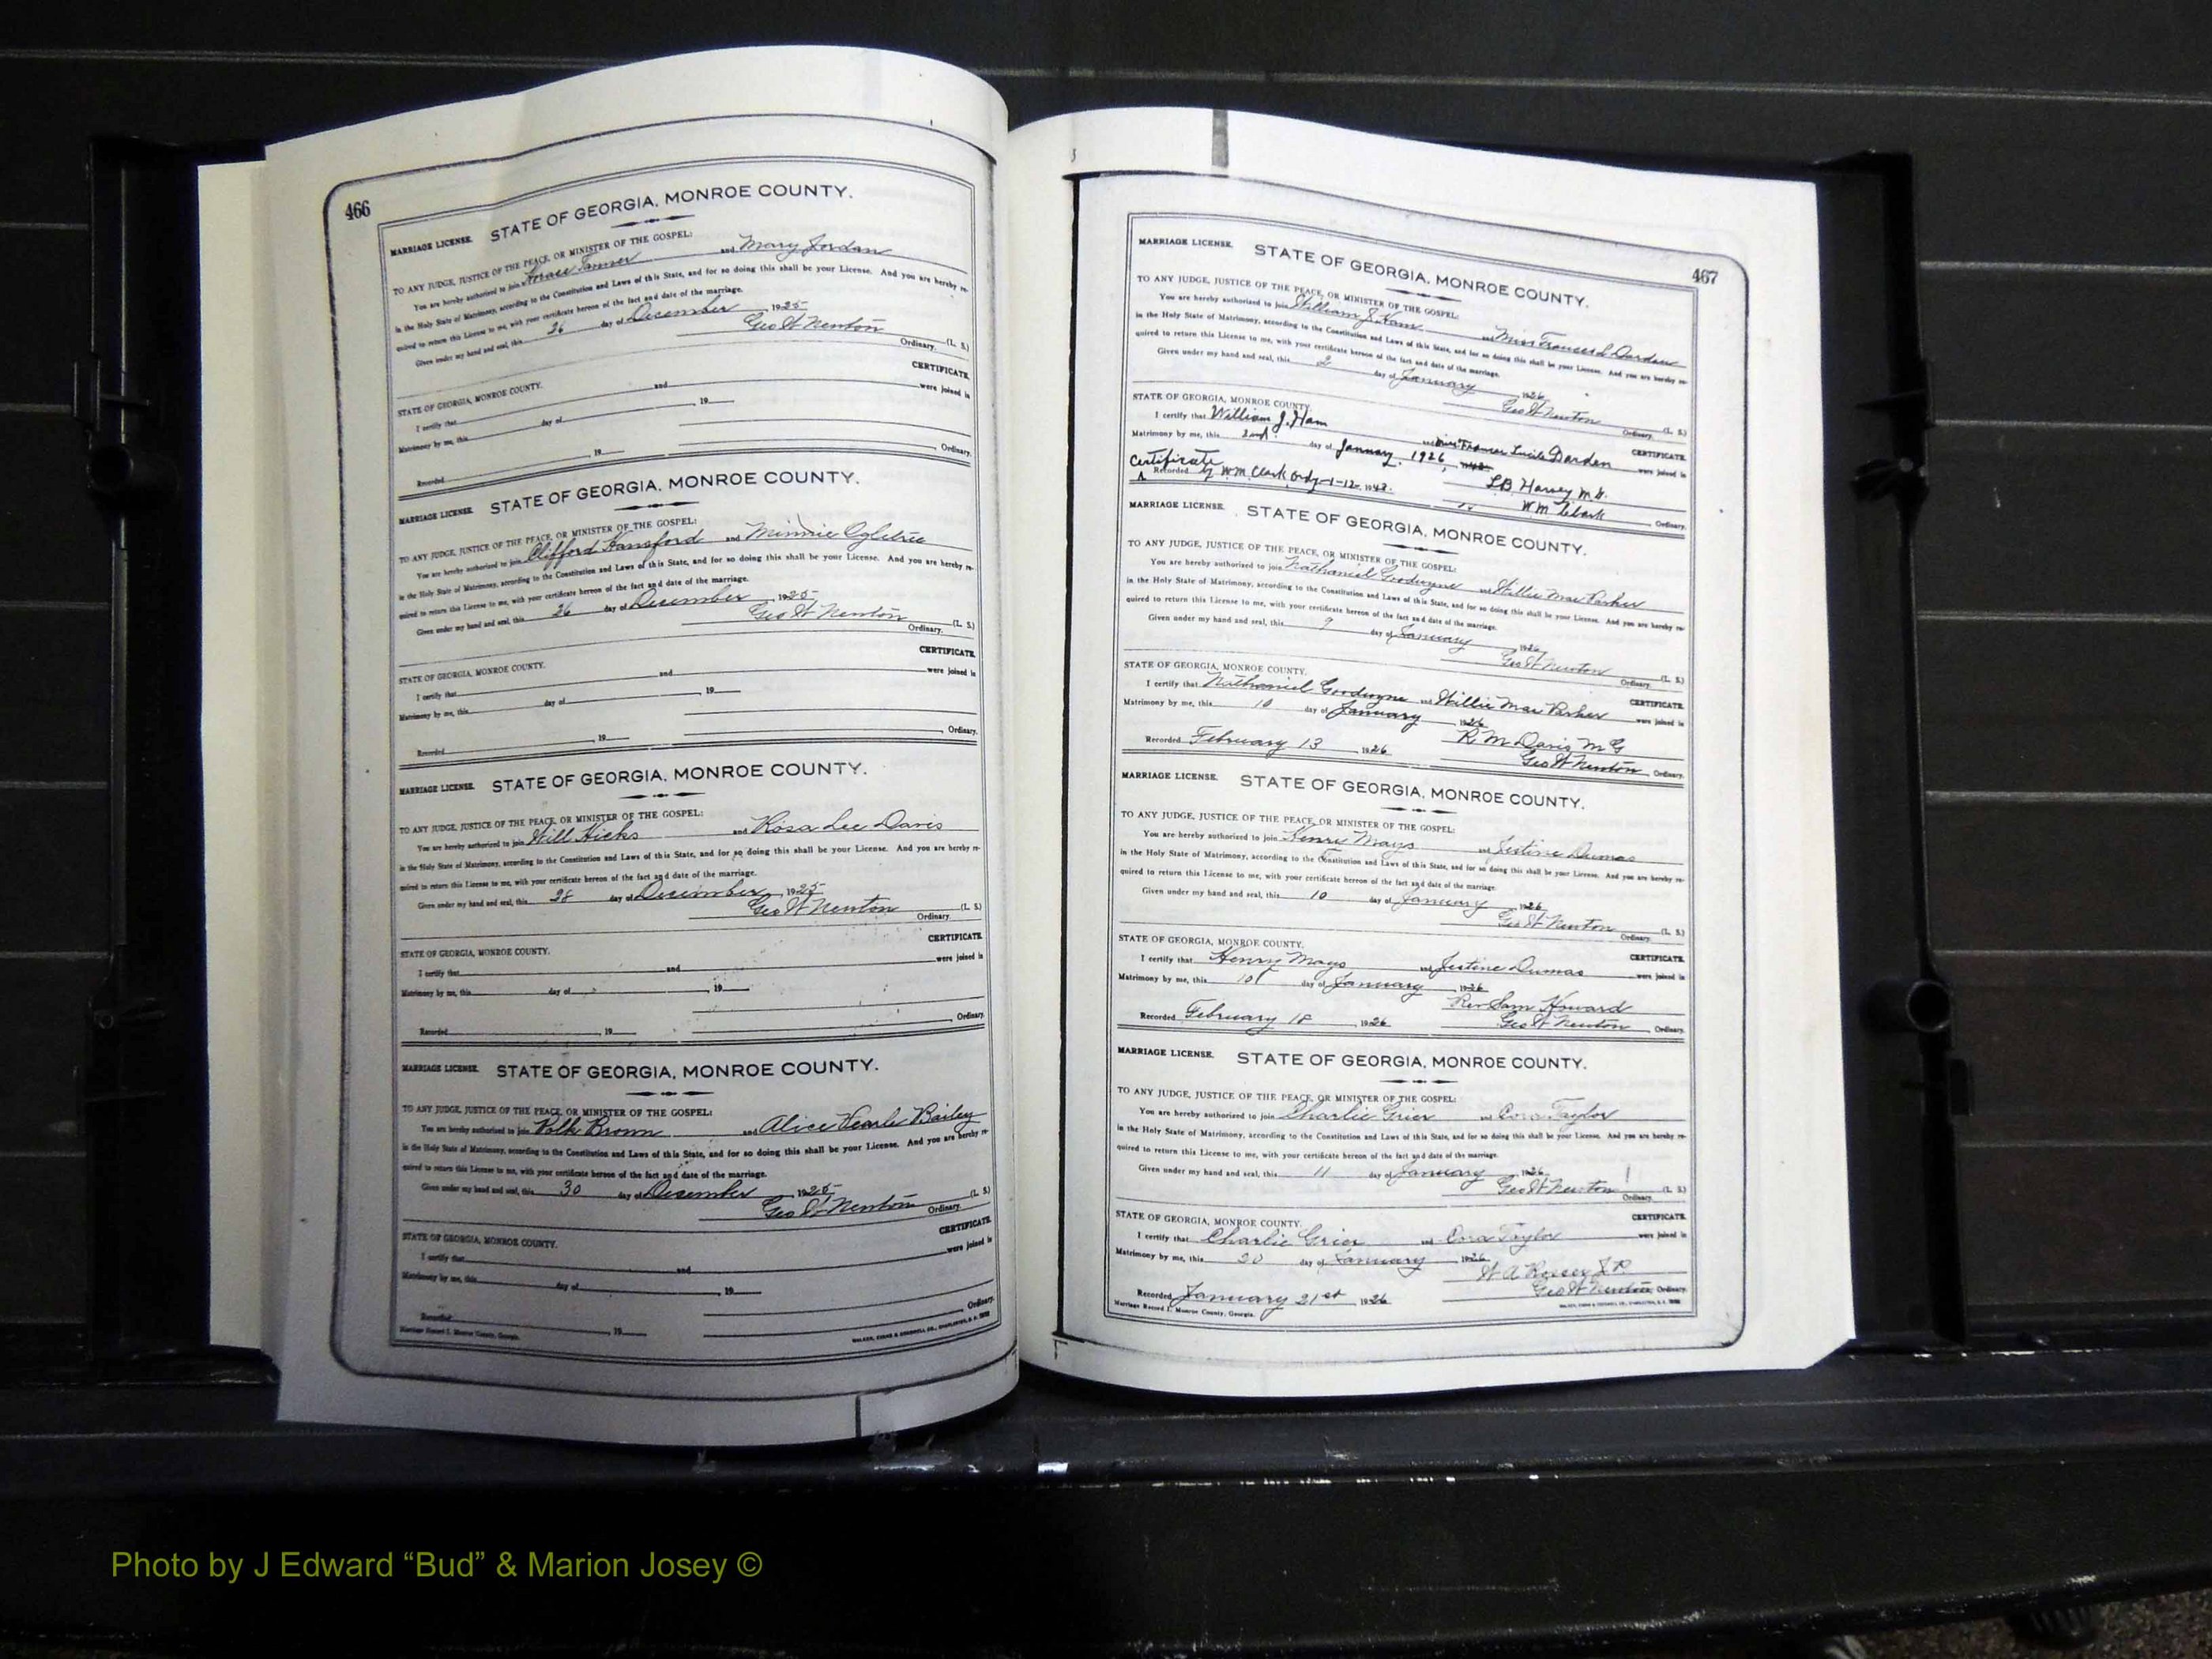 466
STATE OF GEORGIA, MONROE COUNTY.
MARRIAGE LICENSE.
TO ANY JUDGE, JUSTICE OF THE PEACE, OR MINISTER OF THE GOSPEL:
You are hereby authorized to join Horace Tanner and Mary Jordan
in the Holy State of Matrimony, according to the Constitution and Laws of this State, and for so doing this shall be your License. And you are hereby re-
quired to return this License to me, with your certificate hereon of the fact and date of the marriage.
Given under my hand and seal, this 26 day of December, 1925
Geo W Newton (L. S.)
Ordinary.
STATE OF GEORGIA, MONROE COUNTY. CERTIFICATE.
I certify that and were joined in
Matrimony by me, this day of , 19
Recorded 19 Ordinary.
MARRIAGE LICENSE. STATE OF GEORGIA, MONROE COUNTY.
TO ANY JUDGE, JUSTICE OF THE PEACE, OR MINISTER OF THE GOSPEL:
You are hereby authorized to join Clifford Hansford and Minnie Ogletree
in the Holy State of Matrimony, according to the Constitution and Laws of this State, and for so doing this shall be your License. And you are hereby re-
quired to return this License to me, with your certificate hereon of the fact and date of the marriage.
Given under my hand and seal, this 26 day of December, 1925
Geo W Newton (L. S.)
Ordinary.
STATE OF GEORGIA, MONROE COUNTY. CERTIFICATE.
I certify that and were joined in
Matrimony by me, this day of , 19
Recorded , 19 Ordinary.
MARRIAGE LICENSE. STATE OF GEORGIA, MONROE COUNTY.
TO ANY JUDGE, JUSTICE OF THE PEACE, OR MINISTER OF THE GOSPEL:
You are hereby authorized to join Will Hicks and Rosa Lee Davis
in the Holy State of Matrimony, according to the Constitution and Laws of this State, and for so doing this shall be your License. And you are hereby re-
quired to return this License to me, with your certificate hereon of the fact and date of the marriage.
Given under my hand and seal, this 28 day of December, 1925
Geo W Newton (L. S.)
Ordinary.
STATE OF GEORGIA, MONROE COUNTY. CERTIFICATE.
I certify that and were joined in
Matrimony by me, this day of , 19
Recorded , 19 Ordinary.
MARRIAGE LICENSE. STATE OF GEORGIA, MONROE COUNTY.
TO ANY JUDGE, JUSTICE OF THE PEACE, OR MINISTER OF THE GOSPEL:
You are hereby authorized to join Polk Brown and Alice Pearle Bailey
in the Holy State of Matrimony, according to the Constitution and Laws of this State, and for so doing this shall be your License. And you are hereby re-
quired to return this License to me, with your certificate hereon of the fact and date of the marriage.
Given under my hand and seal, this 30 day of December, 1925
Geo W Newton (L. S.)
Ordinary.
STATE OF GEORGIA, MONROE COUNTY. CERTIFICATE.
I certify that and were joined in
Matrimony by me, this day of , 19
Recorded , 19 Ordinary.
Marriage Record I. Monroe County, Georgia.
467
MARRIAGE LICENSE. STATE OF GEORGIA, MONROE COUNTY.
TO ANY JUDGE, JUSTICE OF THE PEACE, OR MINISTER OF THE GOSPEL:
You are hereby authorized to join William J. Ham and Miss Frances L Darden
in the Holy State of Matrimony, according to the Constitution and Laws of this State, and for so doing this shall be your License. And you are hereby re-
quired to return this License to me, with your certificate hereon of the fact and date of the marriage.
Given under my hand and seal, this 2 day of January, 1926
Geo W Newton (L. S.)
Ordinary.
STATE OF GEORGIA, MONROE COUNTY. CERTIFICATE.
I certify that William J. Ham and Miss Frances Lucile Darden were joined in
Matrimony by me, this 2nd day of January 1926,
L.B. Harvey M.G.
Certificate Recorded by WM Clark Ordy 1-12-1943.
W M Clark Ordinary.
MARRIAGE LICENSE. STATE OF GEORGIA, MONROE COUNTY.
TO ANY JUDGE, JUSTICE OF THE PEACE, OR MINISTER OF THE GOSPEL:
You are hereby authorized to join Nathaniel Goodwyne and Willie Mae Parker
in the Holy State of Matrimony, according to the Constitution and Laws of this State, and for so doing this shall be your License. And you are hereby re-
quired to return this License to me, with your certificate hereon of the fact and date of the marriage.
Given under my hand and seal, this 9 day of January, 1926
Geo W Newton (L. S.)
Ordinary.
STATE OF GEORGIA, MONROE COUNTY. CERTIFICATE.
I certify that Nathaniel Goodwyne and Willie Mae Parker were joined in
Matrimony by me, this 10 day of January, 1926
R M Davis M G
Recorded February 13, 1926 Geo W Newton Ordinary.
MARRIAGE LICENSE. STATE OF GEORGIA, MONROE COUNTY.
TO ANY JUDGE, JUSTICE OF THE PEACE, OR MINISTER OF THE GOSPEL:
You are hereby authorized to join Henry Mays and Jestine Dumas
in the Holy State of Matrimony, according to the Constitution and Laws of this State, and for so doing this shall be your License. And you are hereby re-
quired to return this License to me, with your certificate hereon of the fact and date of the marriage.
Given under my hand and seal, this 10 day of January, 1926
Geo W Newton (L. S.)
Ordinary.
STATE OF GEORGIA, MONROE COUNTY. CERTIFICATE.
I certify that Henry Mays and Jestine Dumas were joined in
Matrimony by me, this 10 day of January, 1926
Rev Sam Howard
Recorded February 18, 1926 Geo W Newton Ordinary.
MARRIAGE LICENSE. STATE OF GEORGIA, MONROE COUNTY.
TO ANY JUDGE, JUSTICE OF THE PEACE, OR MINISTER OF THE GOSPEL:
You are hereby authorized to join Charlie Grier and Cora Taylor
in the Holy State of Matrimony, according to the Constitution and Laws of this State, and for so doing this shall be your License. And you are hereby re-
quired to return this License to me, with your certificate hereon of the fact and date of the marriage.
Given under my hand and seal, this 11 day of January, 1926
Geo W Newton (L. S.)
Ordinary.
STATE OF GEORGIA, MONROE COUNTY. CERTIFICATE.
I certify that Charlie Grier and Cora Taylor were joined in
Matrimony by me, this 20 day of January, 1926
W A J P.
Recorded January 21st, 1926 Geo W Newton Ordinary.
Marriage Record I. Monroe County, Georgia.
Photo by J Edward “Bud” & Marion Josey ©